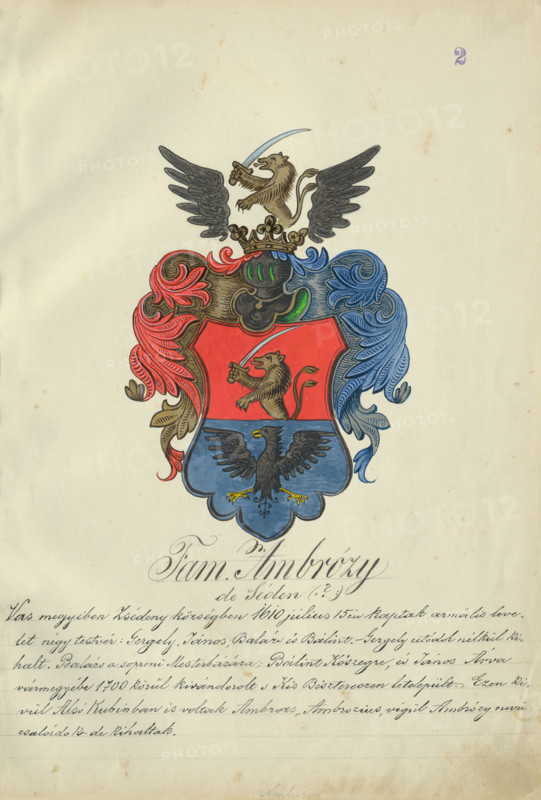 2
Fam. Ambrózy
de Séden (?)
Vas megyében Zsédeny községben 1610 július 15én kaptak armális leve-
let négy testvér: Gergely, János, Balázs és Bálint. – Gergely utódok nélkül ki-
halt. Balázs a soproni Mesterházára; Bálint Kőszegre, és János Árva
vármegyébe 1700 körül kivándorolt s Kis Biszterecen letelepült. Ezen kí-
vül Alsó Kubinban is voltak Ambrozs, Ambrozius, végül Ambrózy nevű
családok de kihaltak.